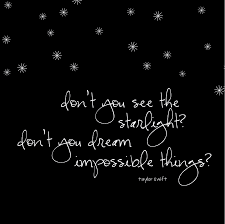 don't you see the
starlight?
don't you dream
impossible things?
taylor swift